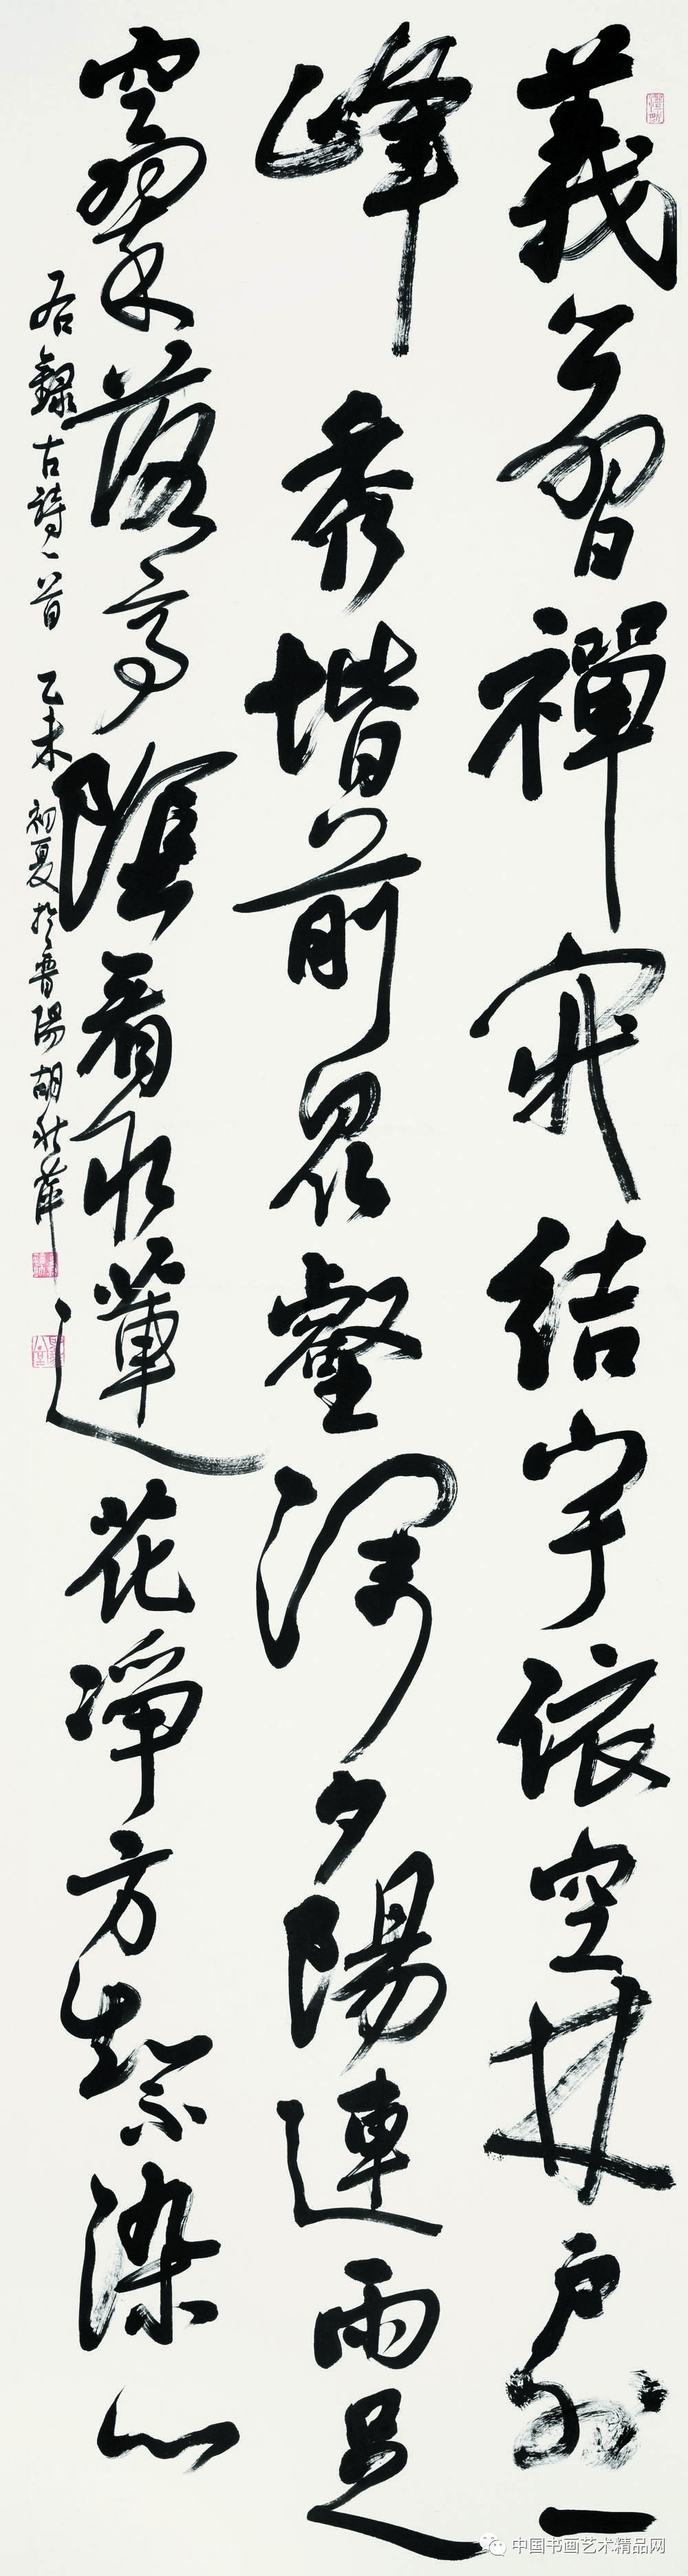 義公習禪寂結宇依空林戶外一
峰秀堦前眾壑深夕陽連雨足
空翠落亭陰看取蓮花凈方知不染心
右録古詩一首 乙未初夏於晉陽胡秋萍
中国书画艺术精品网